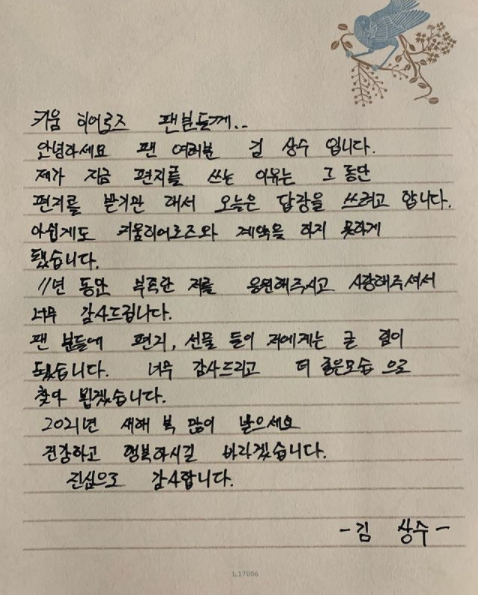 키움 히어로즈 팬분들께..
안녕하세요 팬 여러분 김 상수 입니다.
제가 지금 편지를 쓰는 이유는 그 동안
편지를 받기만 해서 오늘은 답장을 쓰려고 합니다.
아쉽게도 키움히어로즈와 계약을 하지 못하게
됐습니다.
11년 동안 부족한 저를 응원해주시고 사랑해주셔서
너무 감사드립니다.
팬 분들에 편지, 선물 들이 저에게는 큰 힘이
되었습니다. 너무 감사드리고 더 좋은모습 으로
찾아 뵙겠습니다.
2021년 새해 복 많이 받으세요
건강하고 행복하시길 바라겠습니다.
진심으로 감사합니다.
- 김 상수 -
L17086